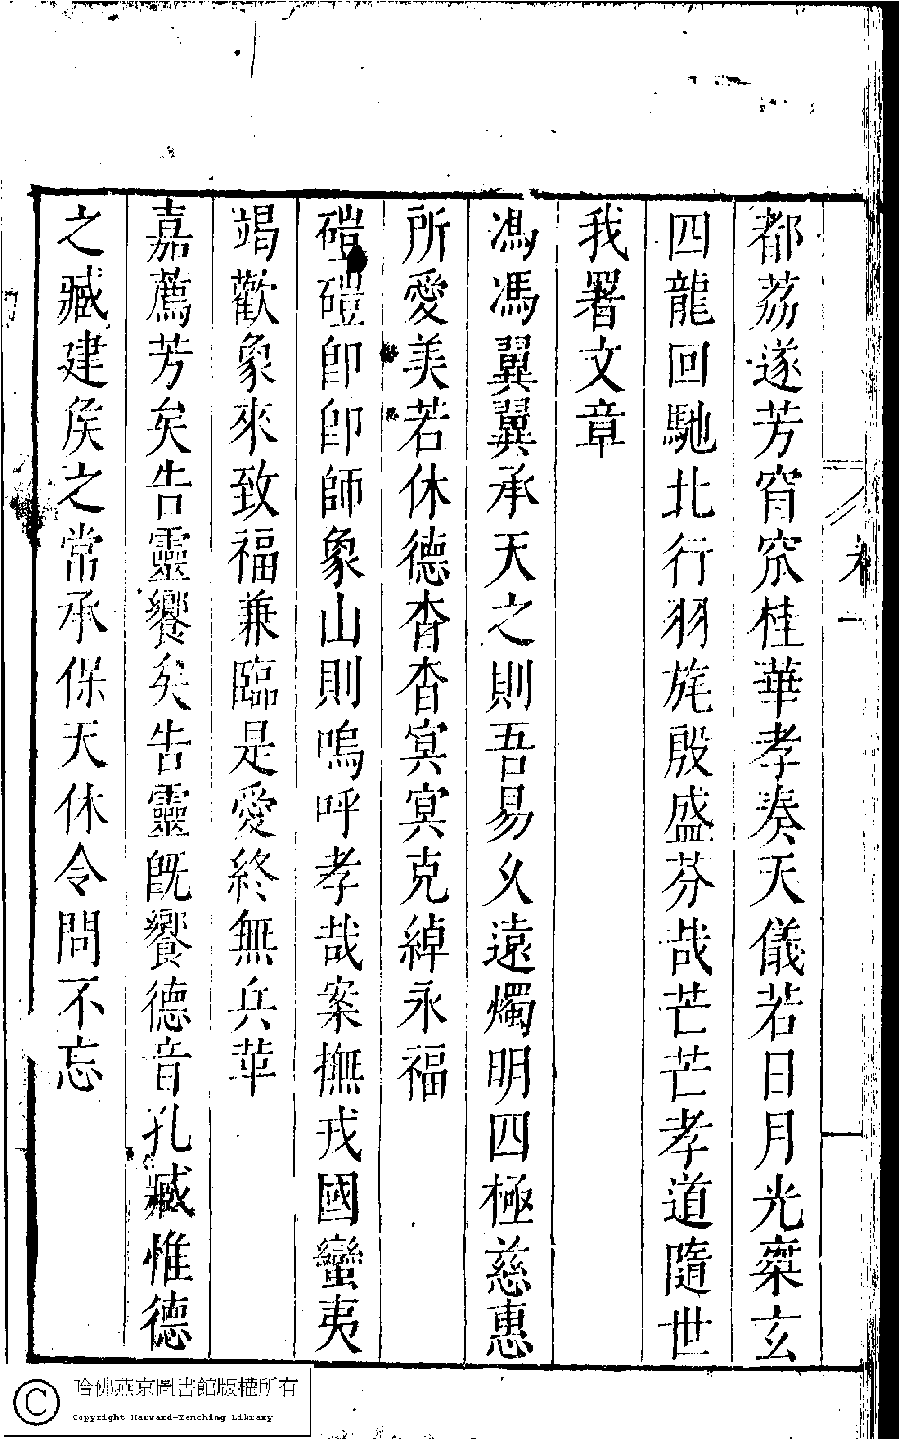 都荔遂芳窅窊桂華孝奏天儀若日月光椉玄
四龍回馳北行羽旄殷盛芬哉芒芒孝道隨世
我署文章
馮馮翼翼承天之則吾易久遠燭明四極慈惠
所愛美若休德杳杳冥冥克綽永福
磑磑卽卽師象山則嗚呼孝哉案撫戎國蠻夷
竭歡象來致福兼臨是愛終無兵革
嘉薦芳矣告靈饗矣告靈旣饗德音孔臧惟德
之臧建矦之常承保天休令問不忘
卷一
哈佛燕京圖書館版權所有
Copyright Harvard-Yenching Library